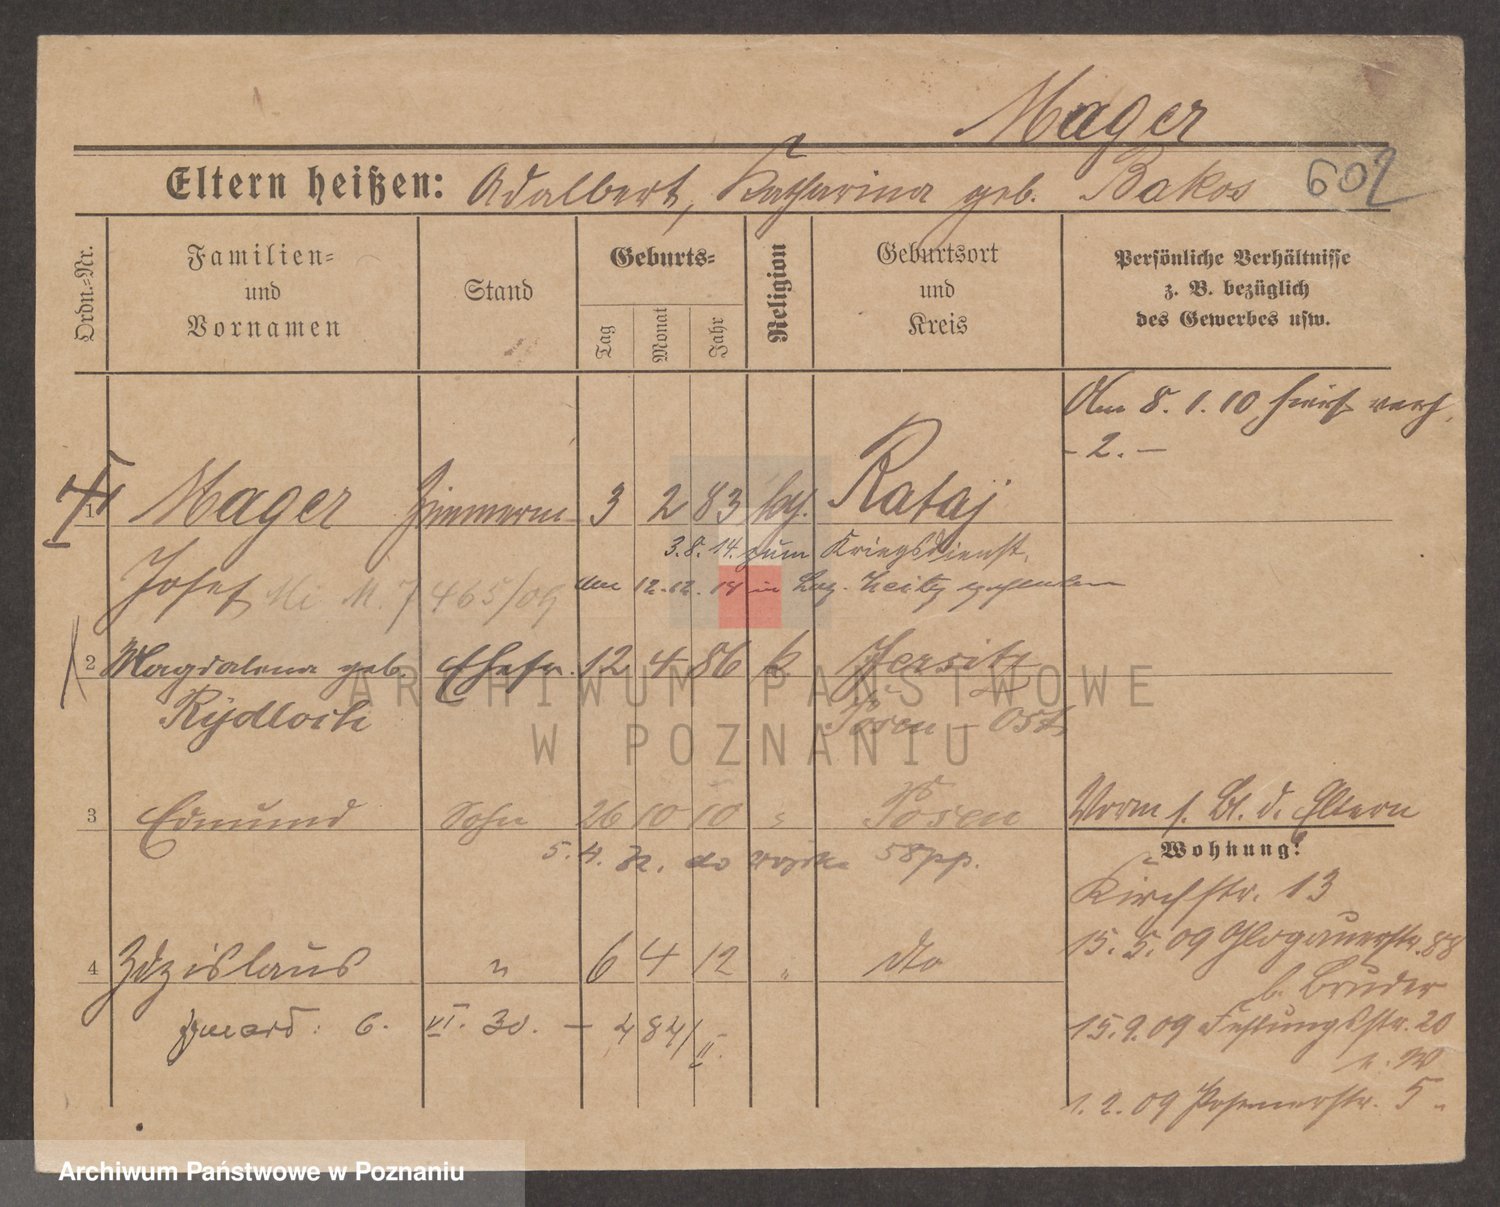 Mager
Eltern heißen: Adalbert, Katharina geb. Bakos 602
Ordn.-Nr.
Familien- und Vornamen
Stand
Geburts-
Tag
Monat
Jahr
Religion
Geburtsort und Kreis
Persönliche Verhältnisse
z. B. bezüglich
des Gewerbes usw.
Am 8. 1. 10 hier verh.
- 2. -
1 Mager Zimmerm 3 2 83 kath. Rataj
3.8.14. zum Kriegsdienst.
Josef 7465/09 am 12.12. in Laz. Zeitz
2 Magdalena geb. Ehefr. 12 4 86 k. Jersitz
Rydloch Posen - Ost
3 Edmund Sohn 26 10 10 " Posen Vorm s. Bl. d. Eltern
5.4. 32. do wojska 58 pp.
Wohnung:
Kirchstr. 13
15. 5. 09 Glogauerstr. 88
b. Bruder
4 Zdzislaus " 6 4 12 " dto
15. 9. 09 Festungsstr. 20
zmarł: 6. VI. 30. - 484/II.
1. 2. 09 Posenerstr. 5
ARCHIWUM PAŃSTWOWE
W POZNANIU
Archiwum Państwowe w Poznaniu